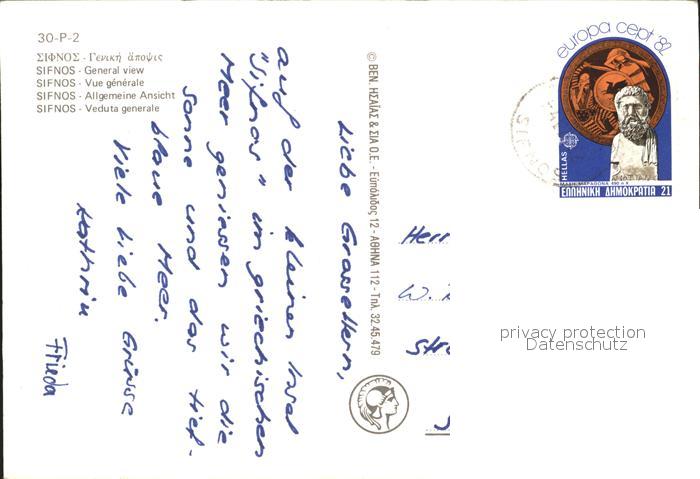 30-P-2
ΣΙΦΝΟΣ - Γενική άποψις
SIFNOS - General view
SIFNOS - Vue générale
SIFNOS - Allgemeine Ansicht
SIFNOS - Veduta generale
Liebe Grosseltern,
auf der kleinen Insel
"Sifnos" im griechischen
Meer geniessen wir die
Sonne und das tief-
blaue Meer.
Viele liebe Grüsse
Kathrin
Frieda
© BEN. ΗΣΑΪΑΣ & ΣΙΑ Ο.Ε. - Ευπόλιδος 12 - ΑΘΗΝΑ 112 - Τηλ. 32.45.479
europa cept '82
HELLAS
ΕΛΛΗΝΙΚΗ ΔΗΜΟΚΡΑΤΙΑ 21
Herr
W.
privacy protection
Datenschutz